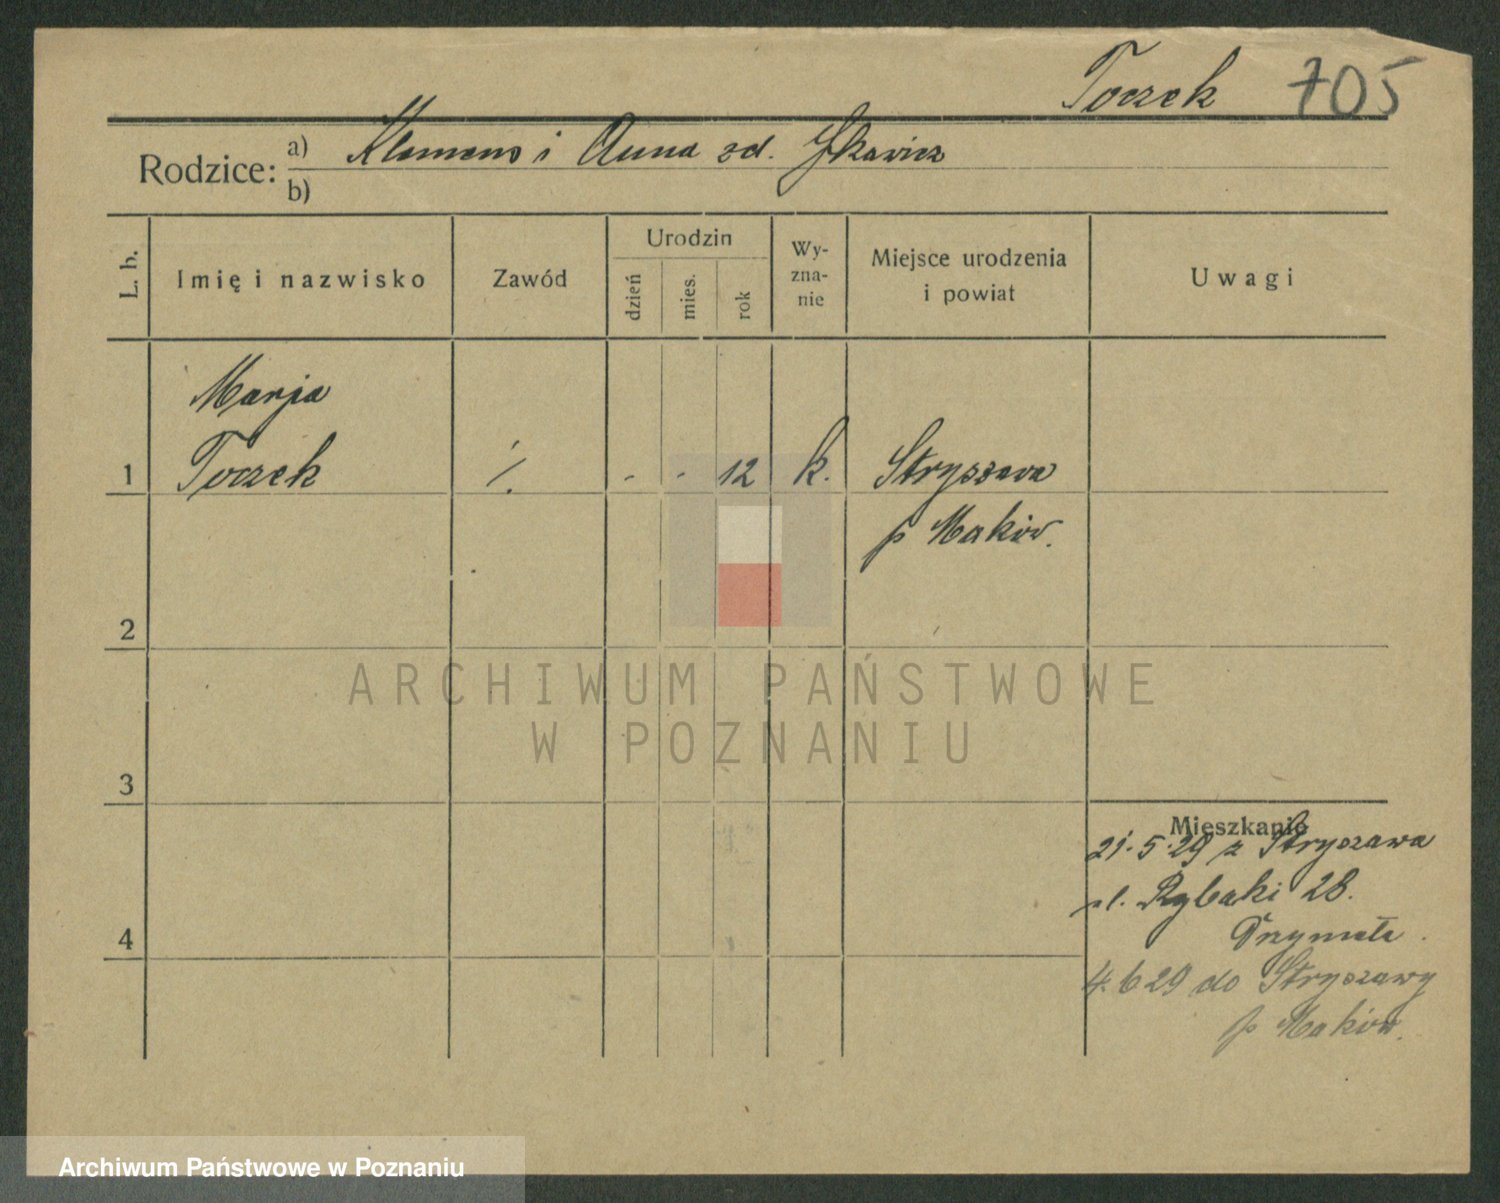 Toczek 705
Rodzice: a) Klemens i Anna zd.
b)
L. b.
Imię i nazwisko
Zawód
Urodzin
dzień
mies.
rok
Wy-
zna-
nie
Miejsce urodzenia
i powiat
Uwagi
Marja
1 Toczek ·/. - - 12 k. Stryszawa
p Maków.
2
3
4
Mieszkanie
21.5.29 z Stryszawa
ul. Rybaki 28.
4.6 29 do Stryszawy
p Maków.
ARCHIWUM PAŃSTWOWE
W POZNANIU
Archiwum Państwowe w Poznaniu